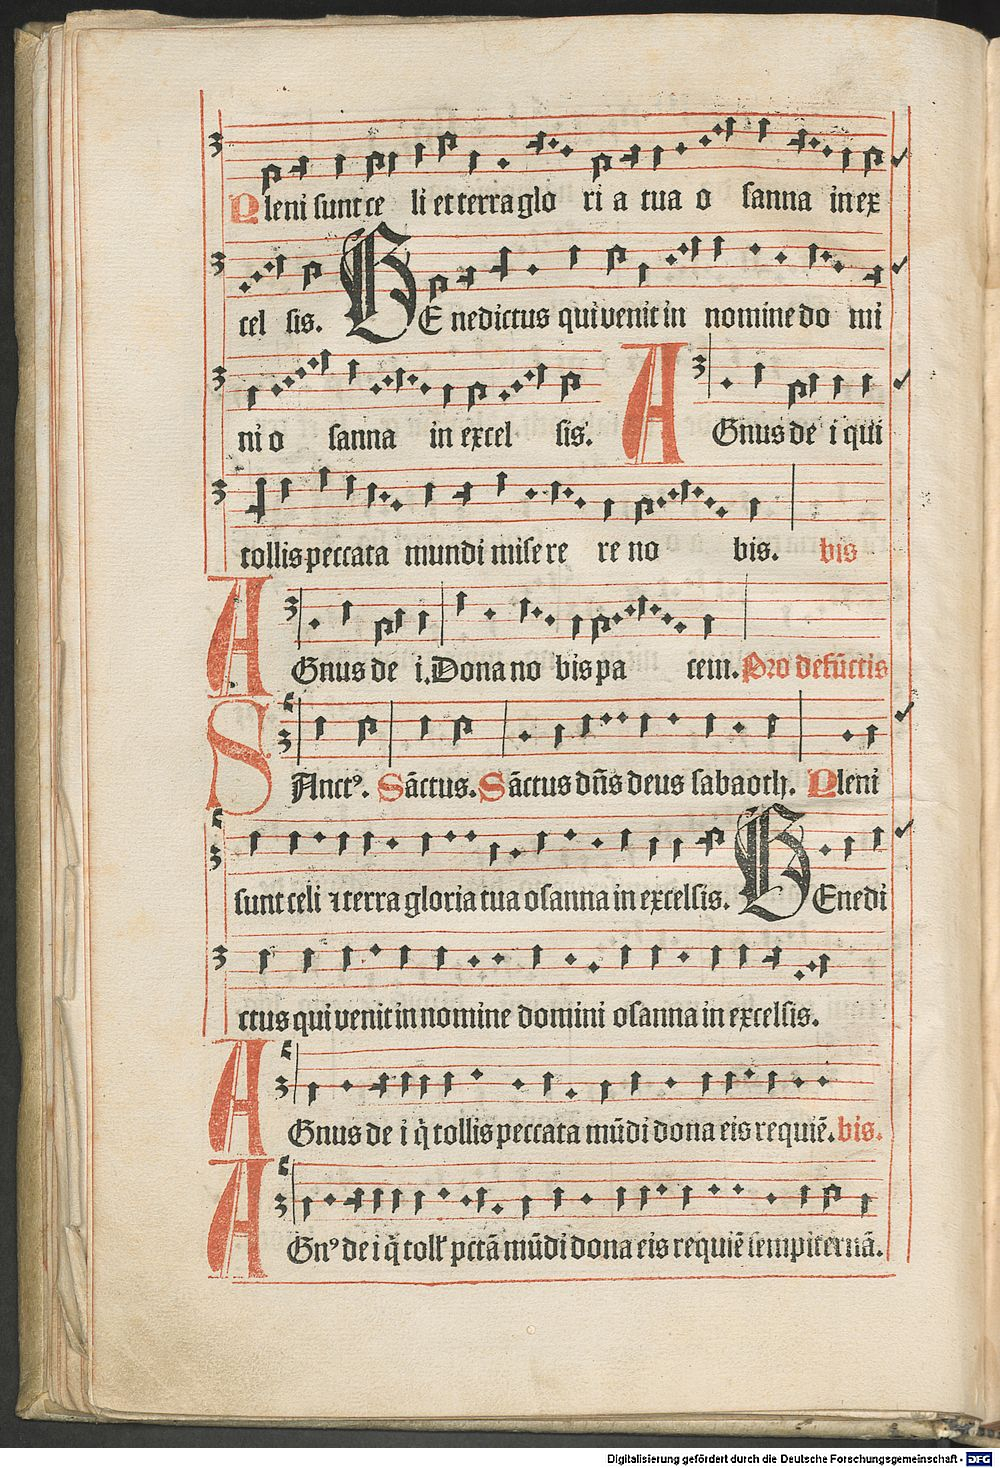 Pleni sunt ce li et terra glo ri a tua o sanna in ex
cel sis. BE nedictus qui venit in nomine do mi
ni o sanna in excel sis. AGnus de i qui
tollis peccata mundi mise re re no bis. bis
AGnus de i. Dona no bis pa cem. Pro defūctis
SAnctꝰ. Sāctus. Sāctus dn̄s deus sabaoth. Pleni
sunt celi ⁊ terra gloria tua osanna in excelsis. BEnedi
ctus qui venit in nomine domini osanna in excelsis.
AGnus de i q̄ tollis peccata mūdi dona eis requiē. bis.
AGnꝰ de i q̄ toll' pctā mūdi dona eis requiē sempiternā.
Digitalisierung gefördert durch die Deutsche Forschungsgemeinschaft - DFG